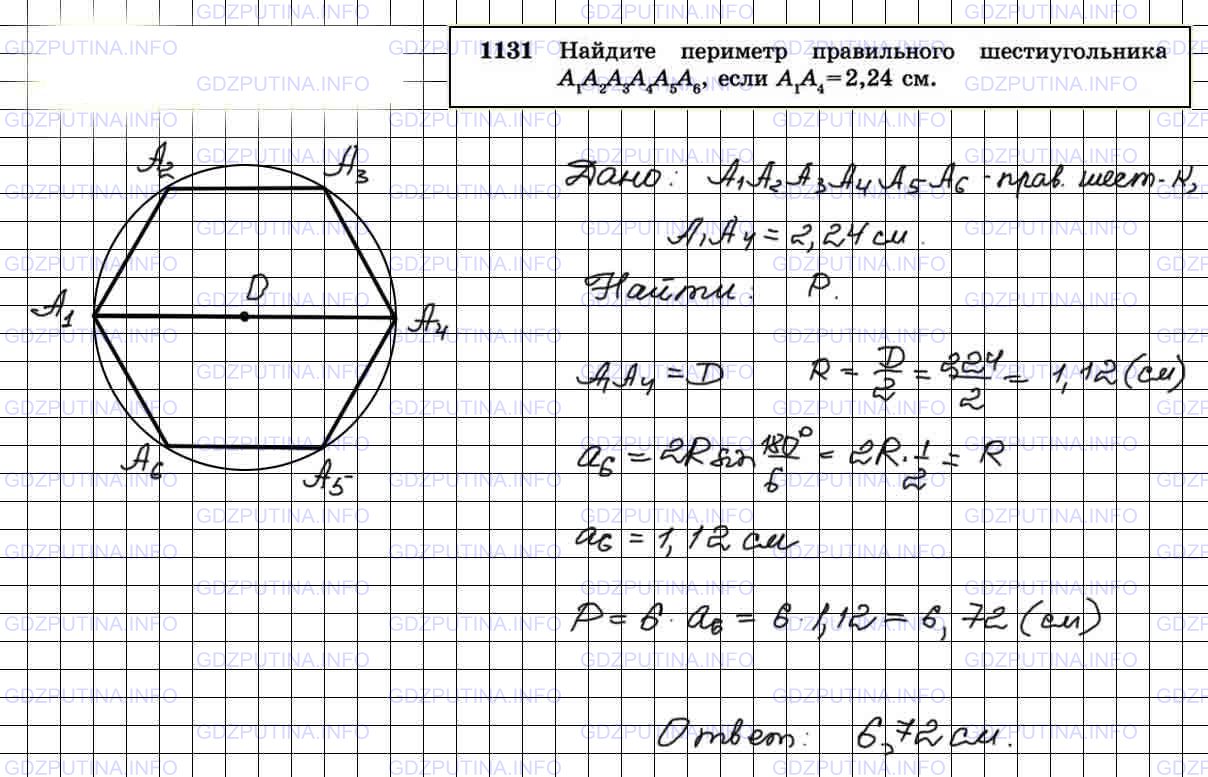 1131 Найдите периметр правильного шестиугольника
A₁A₂A₃A₄A₅A₆, если A₁A₄=2,24 см.
A₂ A₃
D
A₁ A₄
A₆ A₅
Дано: A₁A₂A₃A₄A₅A₆ - прав. шест-к,
A₁A₄ = 2,24 см.
Найти: P.
A₁A₄ = D R = D/2 = 2,24/2 = 1,12 (см)
a₆ = 2R sin 180°/6 = 2R · 1/2 = R
a₆ = 1,12 см
P = 6 · a₆ = 6 · 1,12 = 6,72 (см)
Ответ: 6,72 см.
GDZPUTINA.INFO